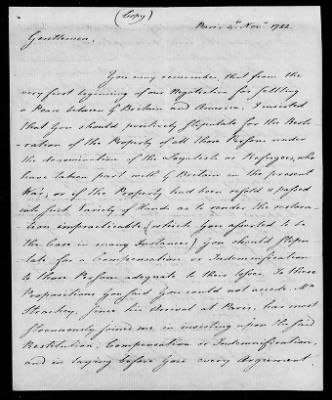 (Copy)
Paris 4th Novr 1782
Gentlemen,
You may remember, that from the
very first beginning of our Negotiation for settling
a Peace between G Britain and America, I insisted
that You should positively stipulate for the Resto-
ration of the Property of all those Persons under
the denomination of the Loyalists or Refugees, who
have taken part with G Britain in the present
War, or if the Property had been resold & passed
into such Variety of Hands as to render the restora-
tion impracticable (which You asserted to be
the Case in many Instances) You should stipu-
late for a Compensation or Indemnification
to those Persons adequate to their losses. To those
Propositions You said You could not accede. Mr
Strachey, since his Arrival at Paris, has most
strenuously joined me in insisting upon the said
Restitution, Compensation or Indemnification,
and in laying before You every Argument